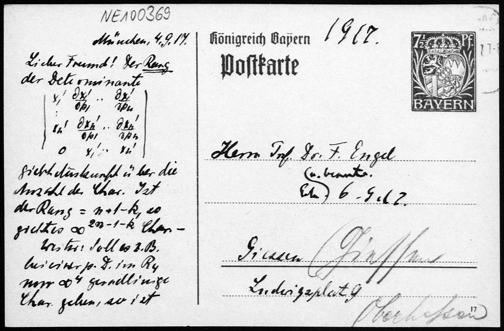 NE100369
München, 4.9.17
Lieber Freund! Der Rang
der Determinante
x₁' ∂x₁'/∂p₁ .. ∂x₁'/∂pₙ
xₙ' ∂xₙ'/∂p₁ .. ∂xₙ'/∂pₙ
0 x₁' .. xₙ'
giebt Auskunft über die
Anzahl der Char. Ist
der Rang = n+1-k, so
giebt es ∞
Char-
Soll es z.B.
bei einer p. D. im R₄
nur ∞⁴ geradlinige
Char. geben, so ist
Königreich Bayern
Postkarte
1917.
7½ Pf
BAYERN
Herrn Prof. Dr. F. Engel
6-9.17
Giessen
(Giessen
Ludwigsplatz 9
Oberhessen
17